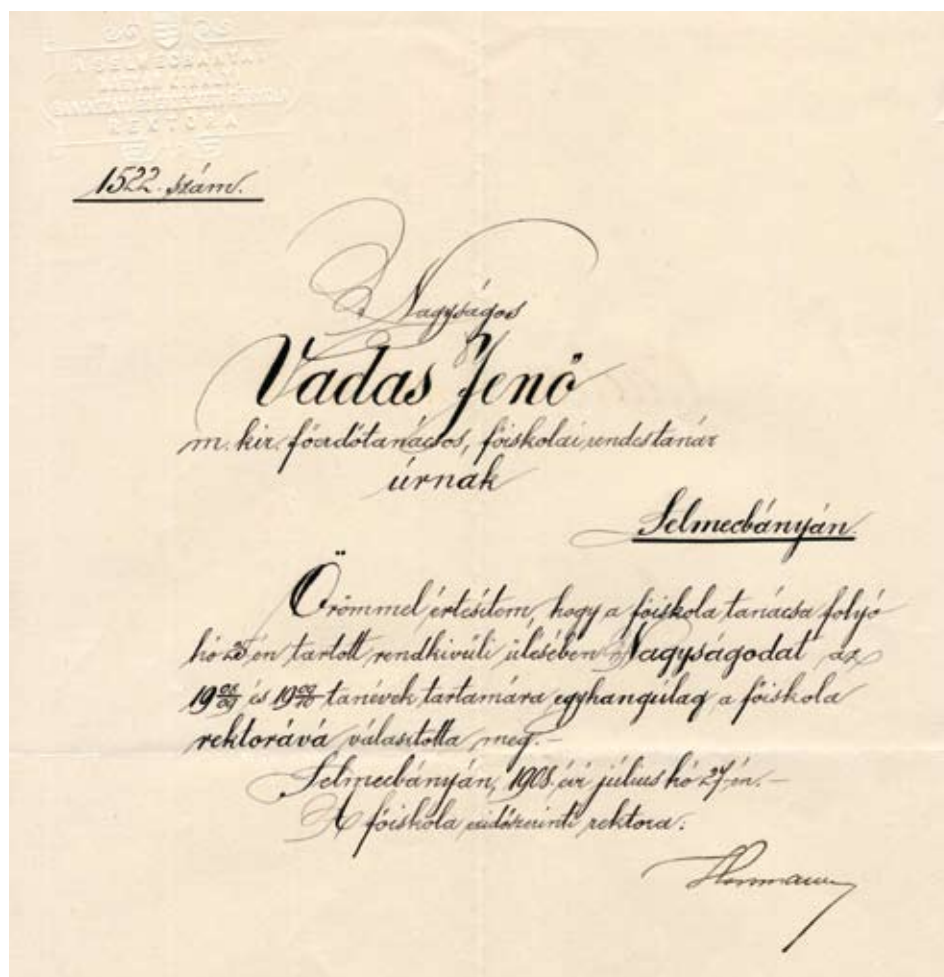 A SELMECBÁNYAI
MAGY. KIRÁLYI
BÁNYÁSZATI ÉS ERDÉSZETI FŐISKOLA
REKTORA
1522. szám.
Nagyságos
Vadas Jenő
m. kir. főerdőtanácsos, főiskolai rendes tanár
úrnak
Selmecbányán.
Örömmel értesítem, hogy a főiskola tanácsa folyó
hó 25 én tartott rendkivüli ülésében Nagyságodat az
19 08/09 és 19 09/10 tanévek tartamára egyhangúlag a főiskola
rektorává választotta meg.-
Selmecbányán, 1908. évi július hó 27-én.-
A főiskola ezidőszerinti rektora:
Herrmann